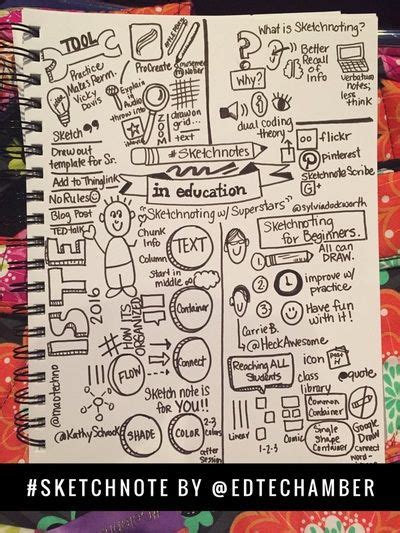 TOOL
Practice
Makes Perm.
Vicky
Davis
ProCreate
Explain
Audio
throw into
iMovie
ZOOM
draw on
grid...
text
Sketch
Draw out
template for Sr.
Add to Thinglink
No Rules
Blog Post
TED talk
What is Sketchnoting?
Why?
Better
Recall
of Info
Verbatum
notes;
less
think
dual coding
theory
flickr
pinterest
Sketchnote Scribe
G+
#Sketchnotes
in education
"Sketchnoting w/ Superstars"
@sylviaduckworth
ISTE
2016
@maotechno
Chunk
Info
Column
TEXT
Start in
middle
HOW ITS
ORGANIZED
Container
Connect
FLOW
Sketch note is
for YOU!!
@KathySchrock
SHADE
COLOR
2-3
colors
after
session
Sketchnoting
for Beginners.
1
All can
DRAW.
2
improve w/
practice
3
Have fun
with it!
Carrie B.
@HeckAwesome
Reaching ALL
Students
icon
class
library
quote
Linear
Comic
1-2-3
Common
Container
Single
Shape
Container
Google
Draw
Connect
word-
#SKETCHNOTE BY @EDTECHAMBER